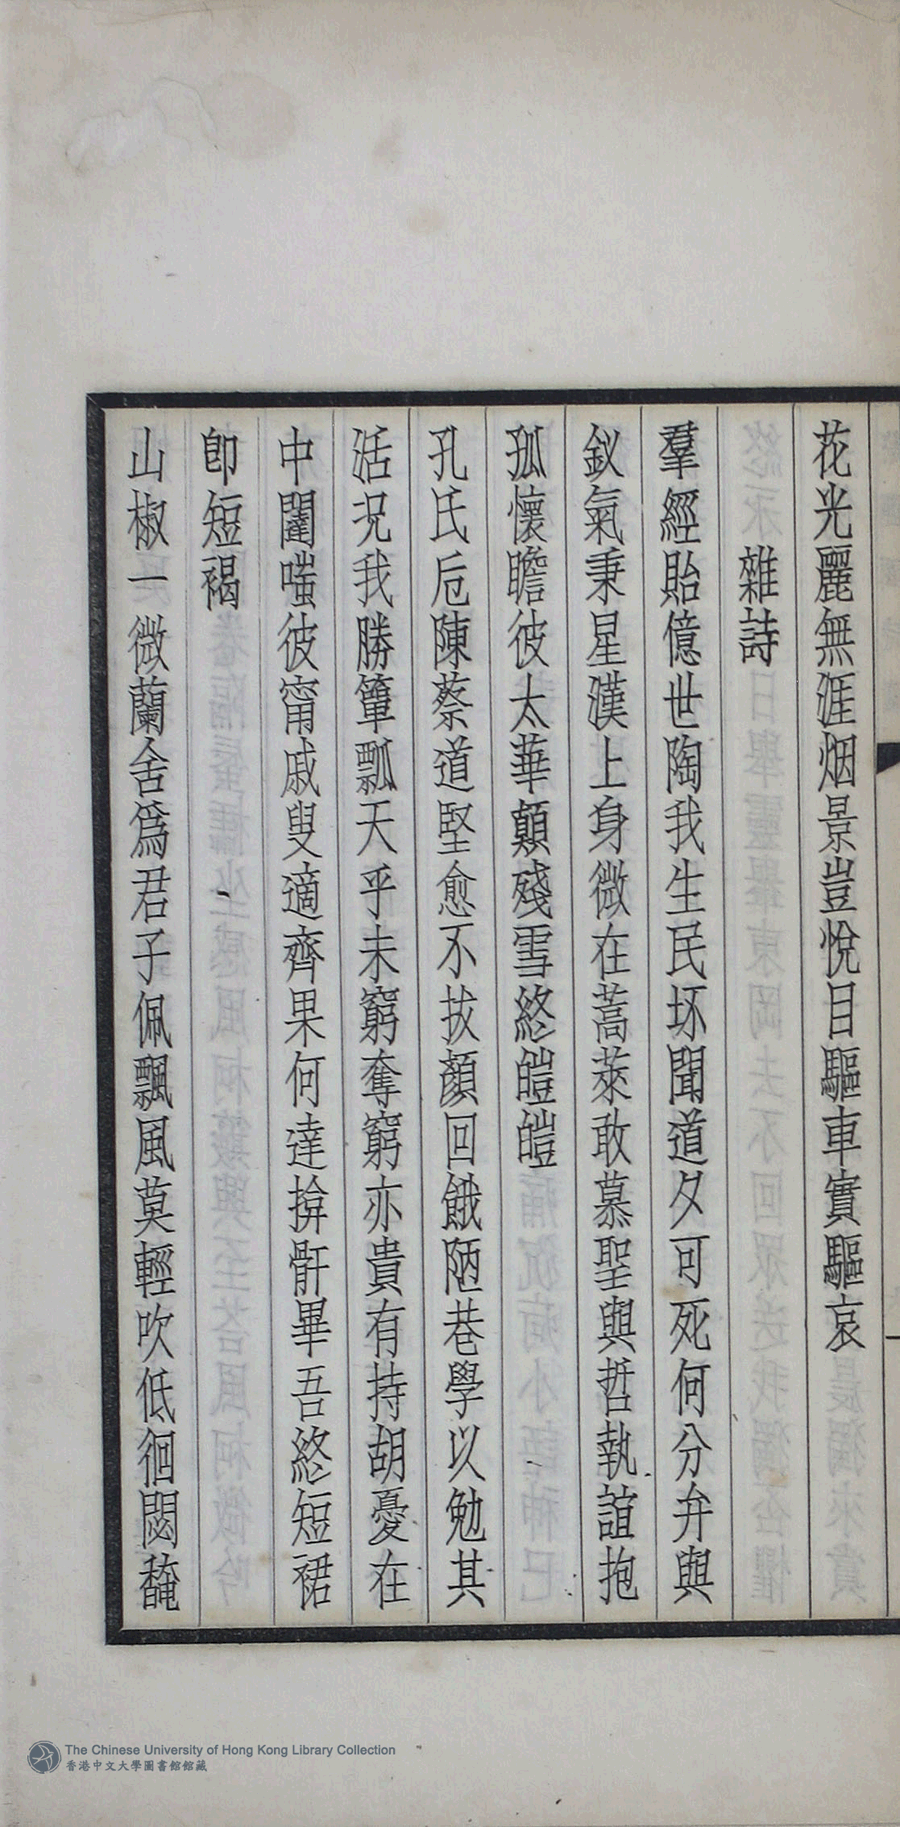 花光麗無涯烟景豈悅目驅車實驅哀
雜詩
羣經貽億世陶我生民坏聞道夕可死何分弁與
釵氣秉星漢上身微在蒿萊敢慕聖與哲執誼抱
孤懷瞻彼太華顛殘雪終皚皚
孔氏厄陳蔡道堅愈不拔顏回餓陋巷學以勉其
活況我勝簞瓢天乎未窮奪窮亦貴有持胡憂在
中闈嗤彼甯戚叟適齊果何達揜骭畢吾終短裙
卽短褐
山椒一微蘭舍爲君子佩飄風莫輕吹低徊閟馣
The Chinese University of Hong Kong Library Collection
香港中文大學圖書館館藏